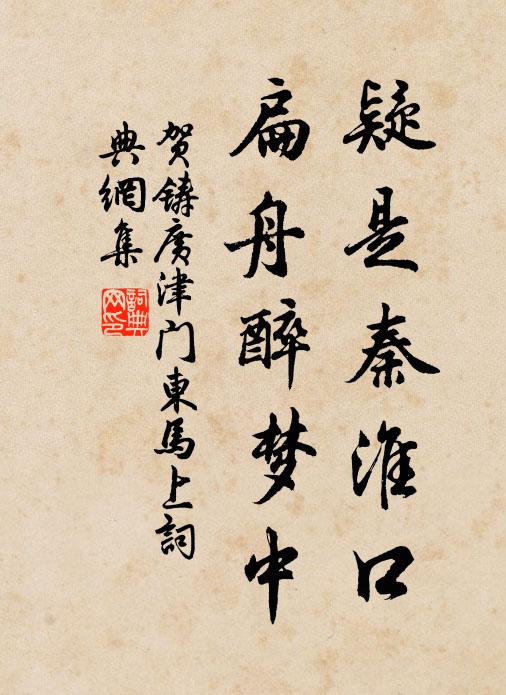 疑是秦淮口
扁舟醉梦中
贺铸廣津门東馬上詞
典網集
詞典网印